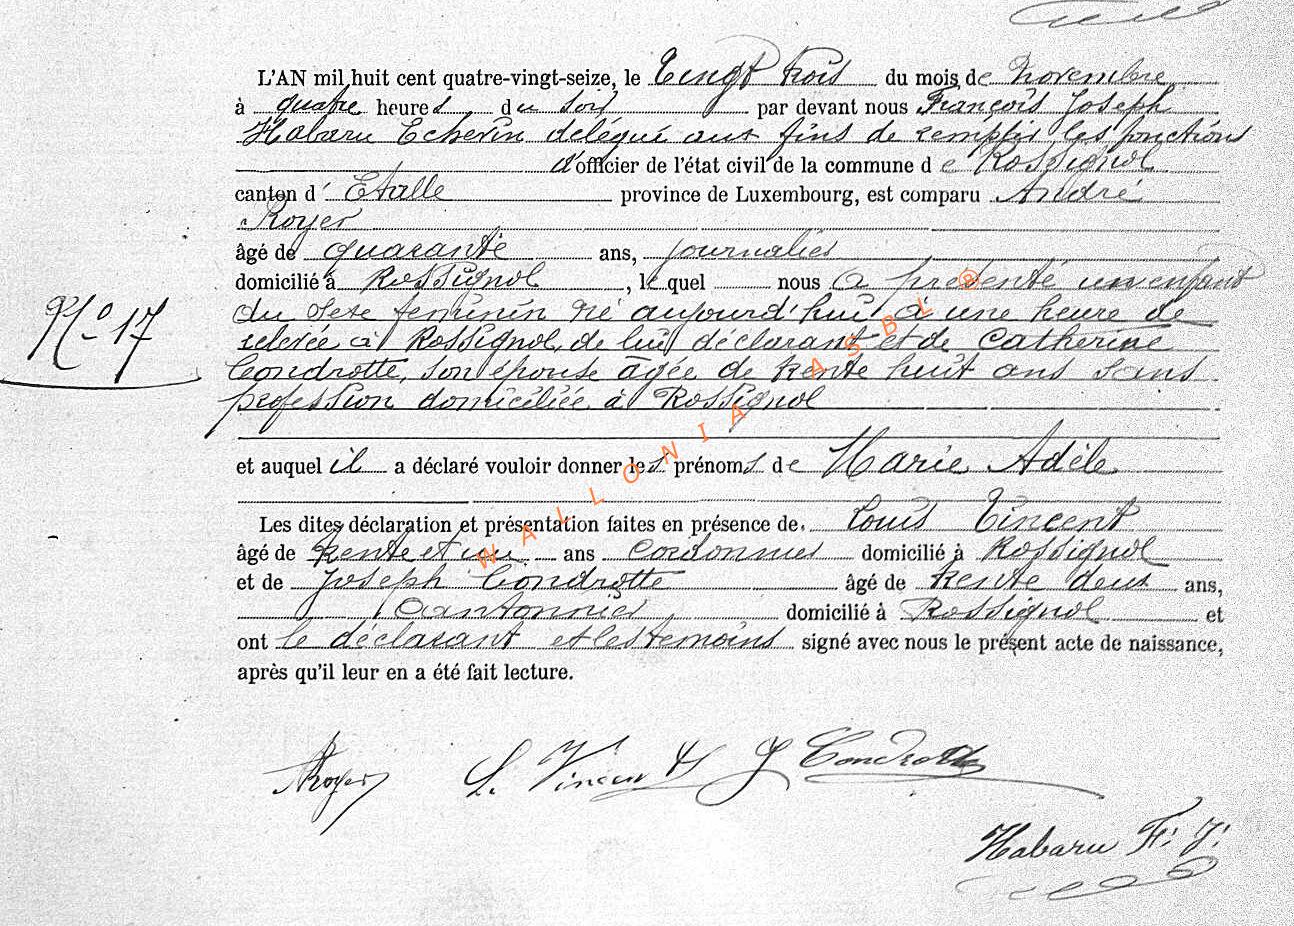 L'AN mil huit cent quatre-vingt-seize, le Vingt trois du mois de Novembre
à quatre heures du soir par devant nous François Joseph
Habaru Echevin délégué aux fins de remplir les fonctions
d'officier de l'état civil de la commune de Rossignol
canton d' Etalle province de Luxembourg, est comparu André
Royer
âgé de quarante ans, journalier
domicilié à Rossignol, lequel nous a présenté un enfant
du sexe féminin né aujourd'hui à une heure de
relevée à Rossignol, de lui déclarant et de Catherine
Condrotte, son épouse âgée de trente huit ans sans
profession domiciliée à Rossignol
N° 17
et auquel il a déclaré vouloir donner les prénoms de Marie Adèle
Les dites déclaration et présentation faites en présence de Louis Vincent
âgé de trente et un ans cordonnier domicilié à Rossignol
et de Joseph Condrotte âgé de trente deux ans,
Cantonnier domicilié à Rossignol et
ont le déclarant et les témoins signé avec nous le présent acte de naissance,
après qu'il leur en a été fait lecture.
ARoyer L. Vincent J Condrotte
Habaru F. J.
WALLONIA ASBL ®